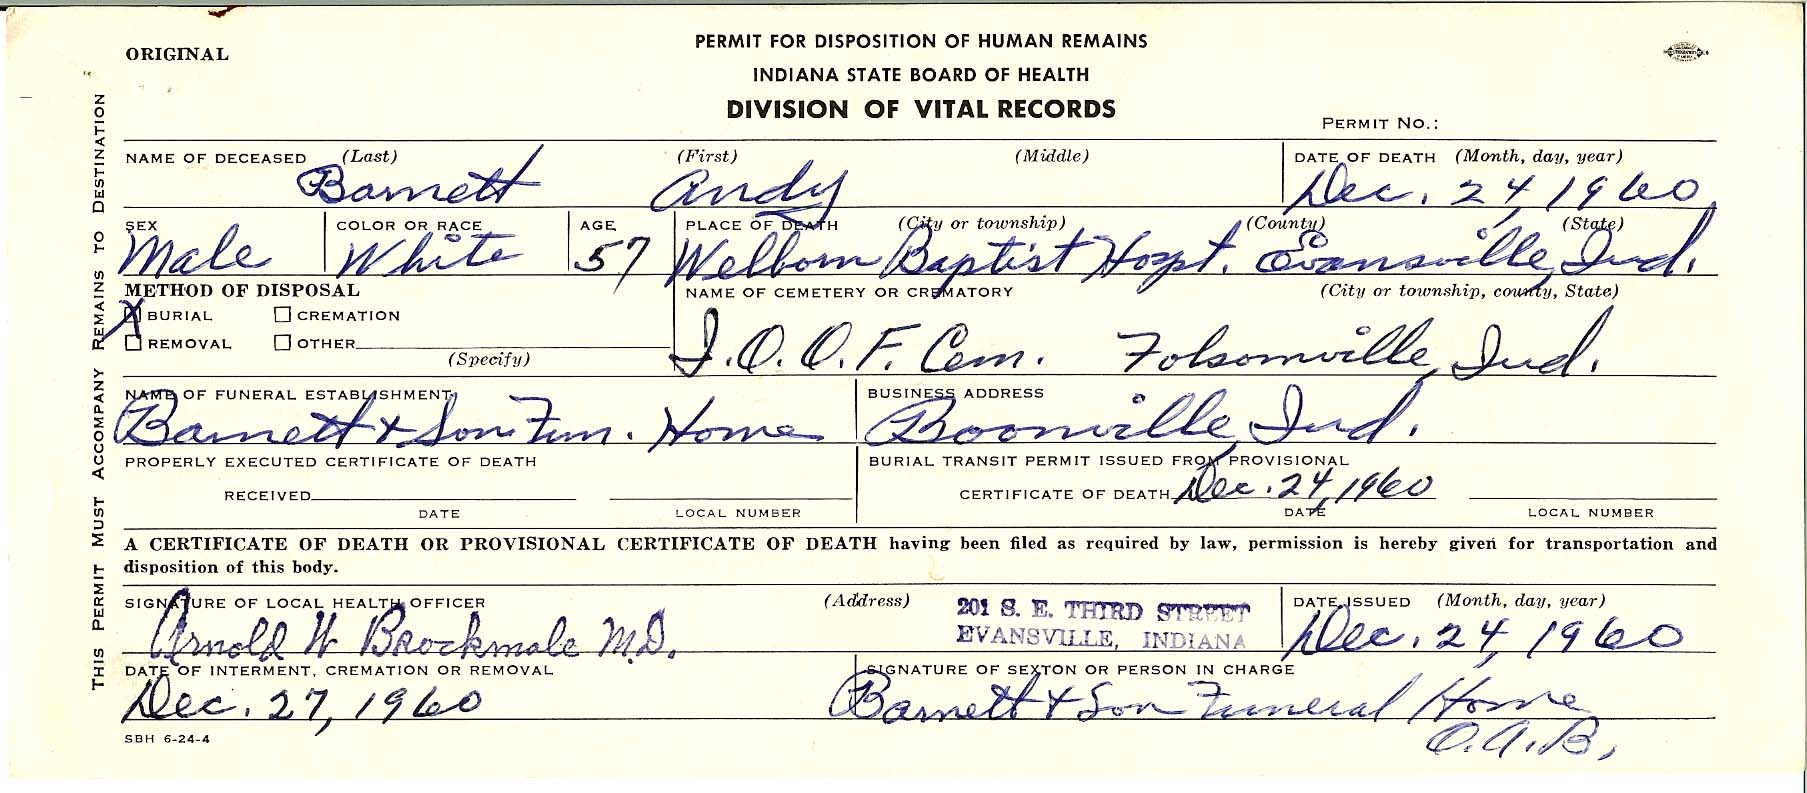 ORIGINAL
PERMIT FOR DISPOSITION OF HUMAN REMAINS
INDIANA STATE BOARD OF HEALTH
DIVISION OF VITAL RECORDS
PERMIT NO.:
THIS PERMIT MUST ACCOMPANY REMAINS TO DESTINATION
NAME OF DECEASED (Last) (First) (Middle) DATE OF DEATH (Month, day, year)
Barnett Andy Dec. 24, 1960
SEX COLOR OR RACE AGE PLACE OF DEATH (City or township) (County) (State)
Male White 57 Welborn Baptist Hospt. Evansville, Ind.
METHOD OF DISPOSAL NAME OF CEMETERY OR CREMATORY (City or township, county, State)
X BURIAL CREMATION
REMOVAL OTHER I.O.O.F. Cem. Folsomville, Ind.
(Specify)
NAME OF FUNERAL ESTABLISHMENT BUSINESS ADDRESS
Barnett + Son Fun. Home Boonville, Ind.
PROPERLY EXECUTED CERTIFICATE OF DEATH BURIAL TRANSIT PERMIT ISSUED FROM PROVISIONAL
RECEIVED CERTIFICATE OF DEATH Dec. 24, 1960
DATE LOCAL NUMBER DATE LOCAL NUMBER
A CERTIFICATE OF DEATH OR PROVISIONAL CERTIFICATE OF DEATH having been filed as required by law, permission is hereby given for transportation and
disposition of this body.
SIGNATURE OF LOCAL HEALTH OFFICER (Address) 201 S. E. THIRD STREET DATE ISSUED (Month, day, year)
Arnold W Brockmole M.D. EVANSVILLE, INDIANA Dec. 24, 1960
DATE OF INTERMENT, CREMATION OR REMOVAL SIGNATURE OF SEXTON OR PERSON IN CHARGE
Dec. 27, 1960 Barnett + Son Funeral Home
SBH 6-24-4 O.A.B.